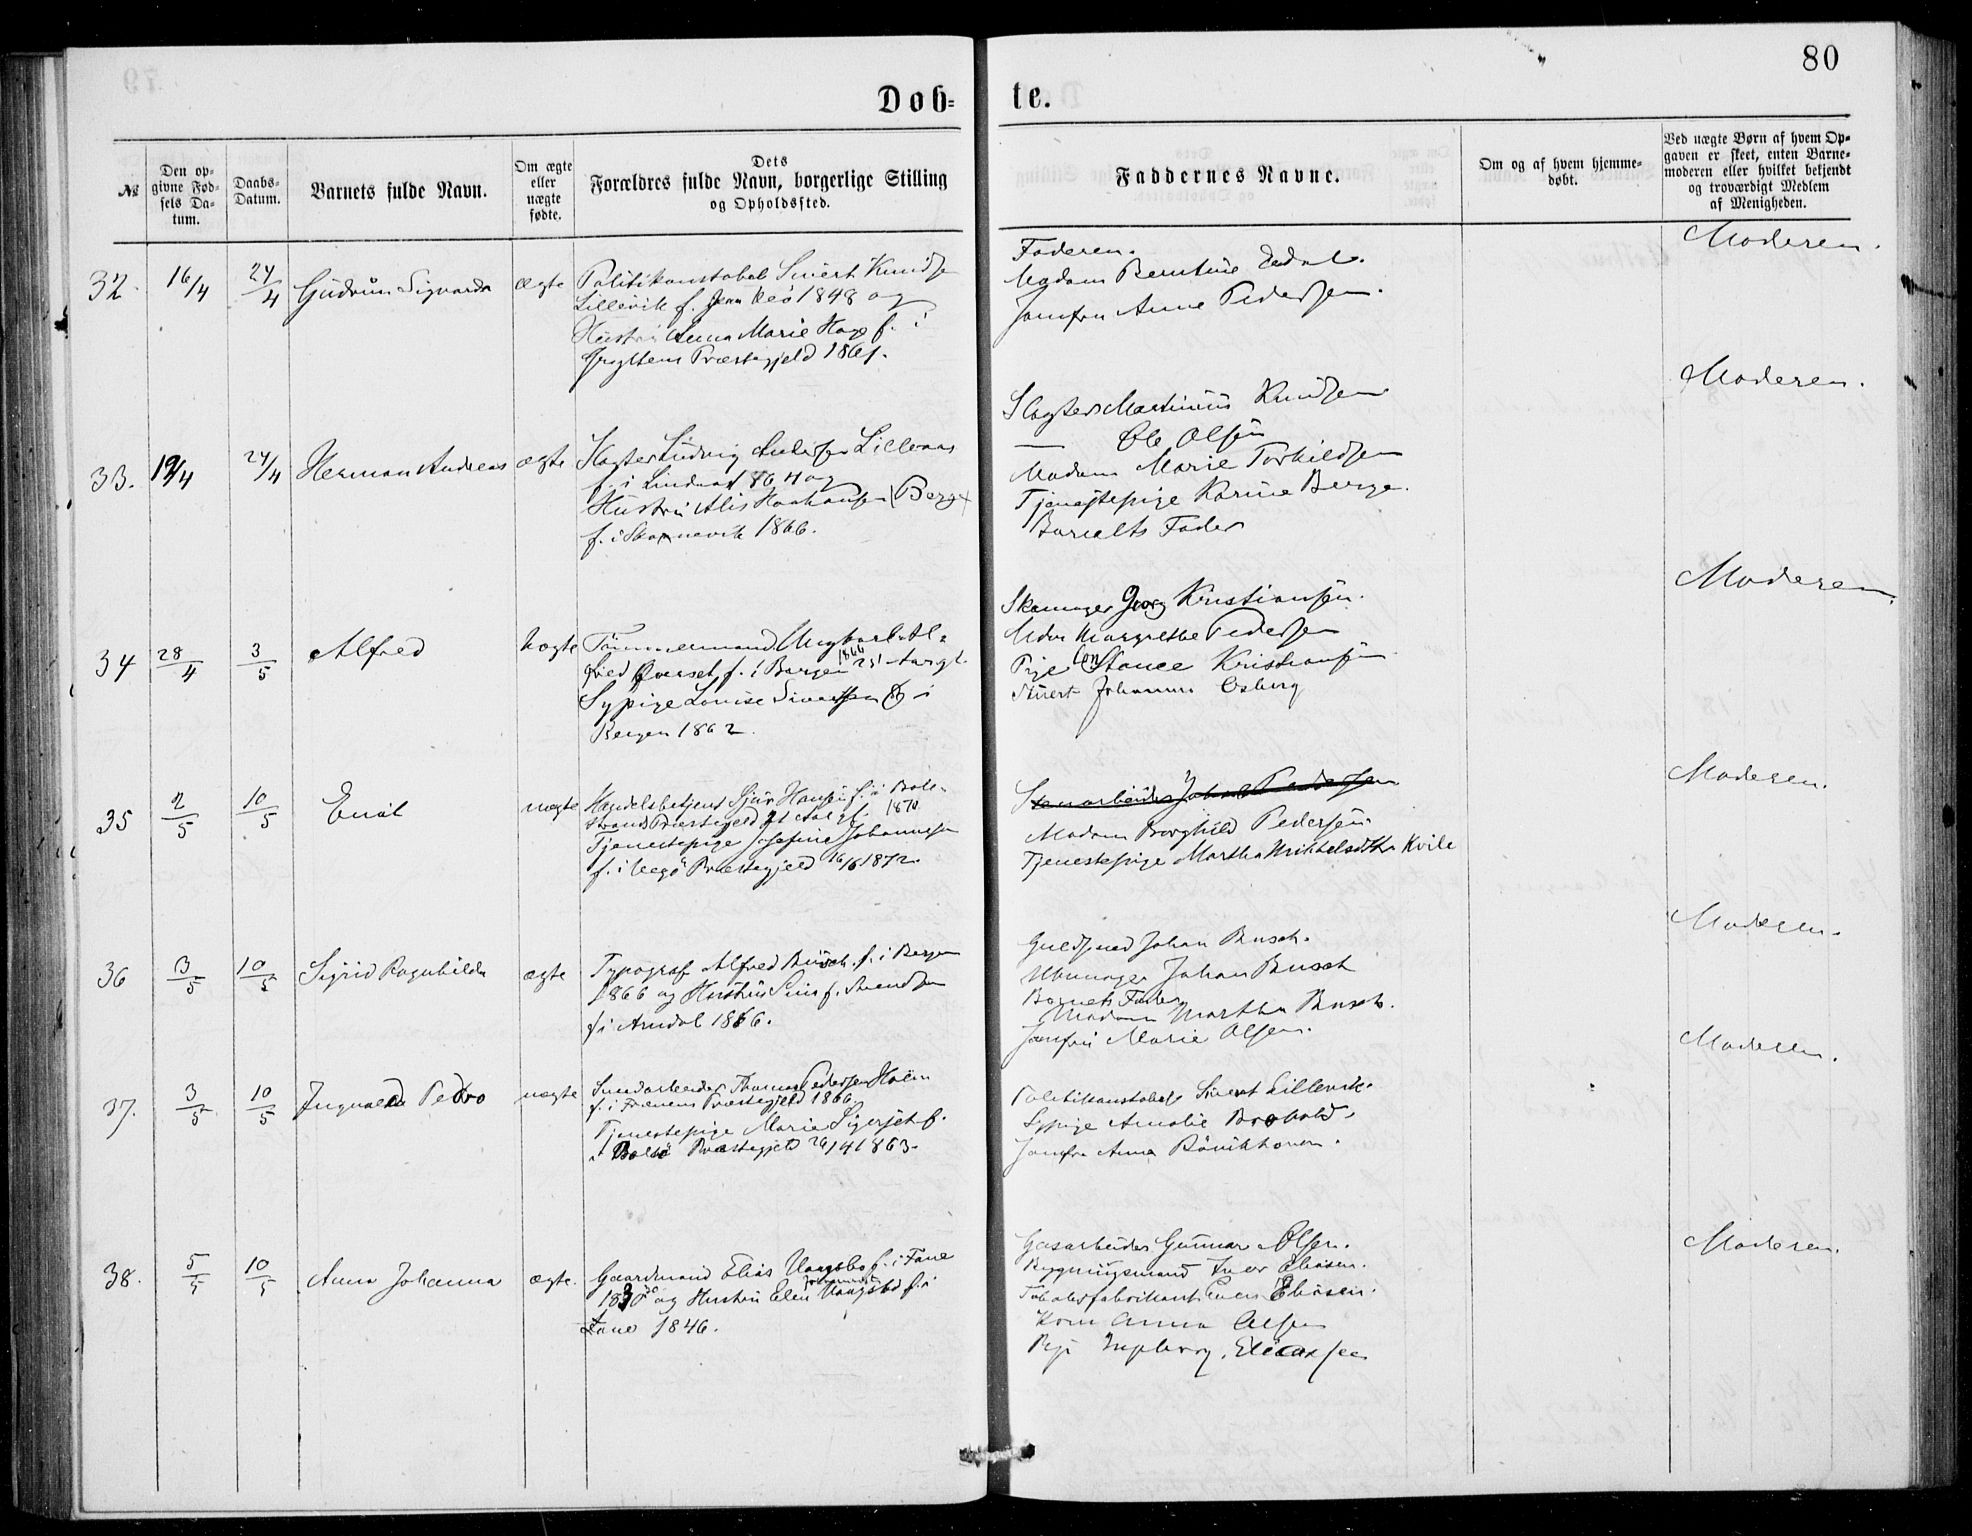 80
Døb-
te.
№
Den op-
givne Fød-
sels Da-
tum.
Daabs-
Datum.
Barnets fulde Navn.
Om ægte
eller
uægte
fødte.
Dets
Forældres fulde Navn, borgerlige Stilling
og Opholdssted.
Faddernes Navne.
Om og af hvem hjemme-
døbt.
Ved uægte Børn af hvem Op-
gaven er skeet, enten Barne-
moderen eller hvilket bekjendt
og troværdigt Medlem
af Menigheden.
32.
16/4
24/4
Gudrun Sigvarda
ægte
Politikonstabel Sivert Knudsen
Lillevik f. 1848 og
Hustru Anna Marie f. i
Gryttens Præstegjeld 1861.
Faderen.
Madam Berntine Eedal.
Jomfru Anne Pedersen.
Moderen.
33.
19/4
24/4
Herman Andreas
ægte
Slagter Ludvig Andersen Lillenæs
f. i Lindaas 1864 og
Hustru Alis Haakonsen (Berge)
f. i Skonevik 1866.
Slagter Martinius Knudsen
— Ole Olsen
Madam Marie Torkildsen
Tjenestepige Karine Berge.
Barnets Fader
Moderen.
34
28/4
3/5
Alfred
uægte
Tømmermand Ungkarl Al-
fred Øverset f. i Bergen 1866 25 Aar gl.
Sypige Louise Sivertsen f i
Bergen 1862.
Skomager Georg Kristiansen.
Mdm Margrethe Pedersen
Pige Constance Kristiansen
Stuert Johannes Osberg
Moderen.
35
2/5
10/5
Emil
uægte
Handelsbetjent Sjur Hansen f. i Bale-
strand Præstegjeld 21 Aar gl. 1870
Tjenestepige Josefine Johannesen
f. i Præstegjeld 16/6 1872.
Stenarbeider Johan Pedersen
Madam Borghild Pedersen
Tjenestepige Martha Mikkelsdtr Kvile
Moderen.
36
3/5
10/5
Sigrid Ragnhilda
ægte
Typograf Alfred Busch f. i Bergen
1866 og Hustru f. Svendsen
f i Arndal 1866.
Guldsmed Johan Busch.
Uhrmager Johan Busch
Barnets Fader
Madam Martha Busch.
Jomfru Marie Olsen.
Moderen.
37.
3/5
10/5
Ingvald Pedro
uægte
Thomas Pedersen Holm
f. i Frænens Præstegjeld 1866.
Tjenestepige Marie f.
i Bolsø Præstegjeld 26/4 1863.
Politikonstabel Sivert Lillevik.
Sypige Amalie
Jomfru Anna
Moderen.
38.
5/5
10/5
Anna Johanna
ægte.
Gaardmand Elias Vaagsbø f. i Fane
og Hustru Elen Johannesd Vaagsbø f. i
Fane 1846.
Gasarbeider Gunnar Olsen.
Bygningsmand Iver Eliasen.
Tobaksfabrikant Eliasen.
Kone Anna Olsen
Pige Ingeborg Eliassen
Moderen.